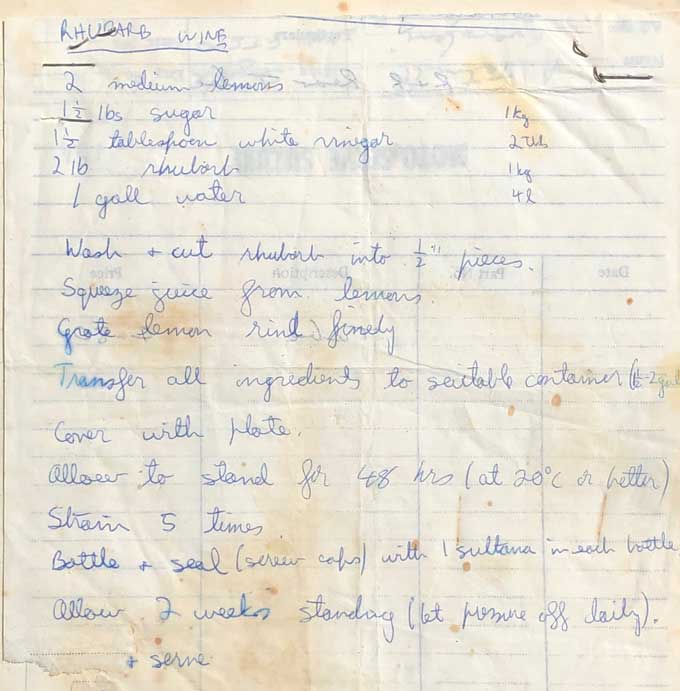 RHUBARB WINE
2 medium lemons
1½ lbs sugar 1kg
1½ tablespoon white vinegar 2 Tbls
2 lb rhubarb 1kg
1 gall water 4l
Wash + cut rhubarb into ½" pieces.
Squeeze juice from lemons.
Grate lemon rind finely
Transfer all ingredients to suitable container (1½-2 gal
Cover with plate.
Allow to stand for 48 hrs (at 20°C or better)
Strain 5 times
Bottle + seal (screw caps) with 1 sultana in each bottle
Allow 2 weeks standing (let pressure off daily).
+ serve
Date Part No. Description Price